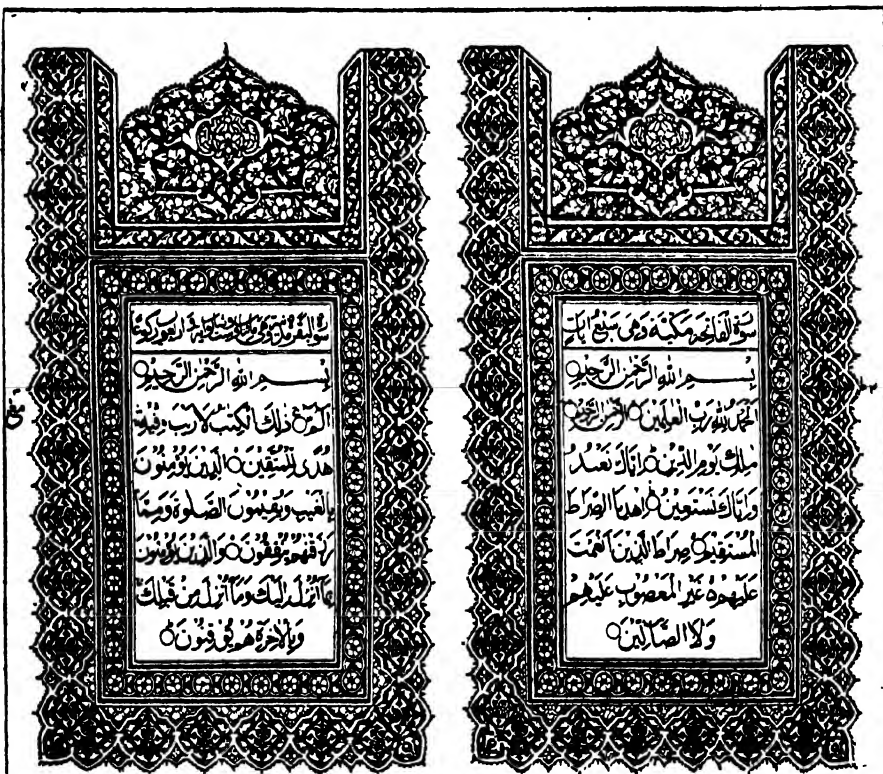 سورة الفاتحة مكية وهى سبع ايات
بسم الله الرحمن الرحيم
الحمد لله رب العلمين الرحمن الرحيم
ملك يوم الدين اياك نعبد
واياك نستعين اهدنا الصراط
المستقيم صراط الذين انعمت
عليهم غير المغضوب عليهم
ولا الضالين
سورة البقرة مدنية وهى
بسم الله الرحمن الرحيم
الم ذلك الكتب لا ريب فيه
هدى للمتقين الذين يؤمنون
بالغيب ويقيمون الصلوة ومما
رزقنهم ينفقون والذين يؤمنون
بما انزل اليك وما انزل من قبلك
وبالاخرة هم يوقنون